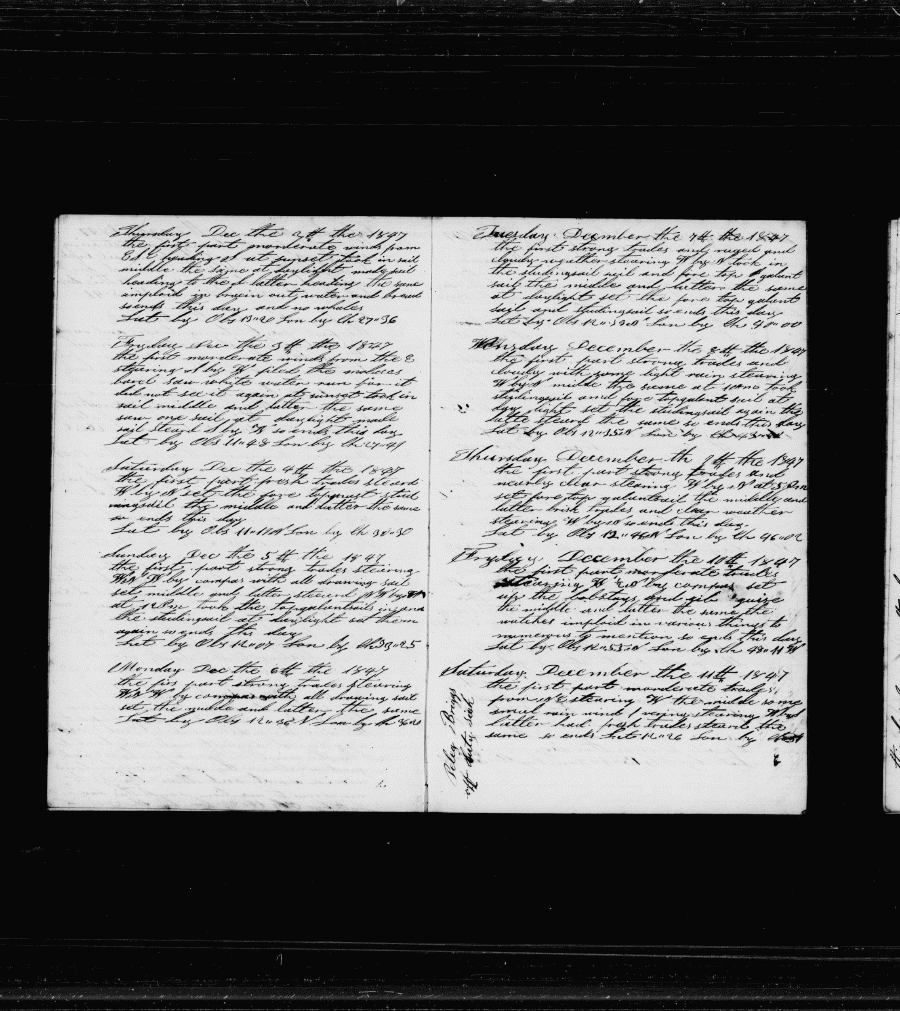 Thursday Dec the 2th the 1847
the first part morderate winds from
ESE heading at sunset took in sail
middle the same at daylight made sail
heading to the latter heating the same
imploid in brakin out water and bread
so ends this day and no whales
Lat by Obs 13"20 Lon by Ch 27"36
Fryday Dec the 3th the 1847
the first morderate winds from the E
stearing by W the
barel saw white water run for it
did not see it again at sunset took in
sail middle and latter the same
saw one sail at daylight made
sail steard by W so ends this day
Lat by Obs 11"48 Lon by Ch 29"41
Saturday Dec the 4th the 1847
the first part fresh trades steard
W by N set the fore topgnust stud
ingsail the middle and latter the same
so ends this day
Lat by Obs 11"17 N Lon by Ch 30"30
Sunday Dec the 5th the 1847
the first part strong trades stearing
WNW by compas with all drawing sail
set middle and latter steard W by N
at Pm took the topgalantsails in and
the studingsail at daylight set them
again so ends this day
Lat by Obs 12"07 Lon by Ch 25
Monday Dec the 6th the 1847
the firs part strong trades stearing
WNW by compas with all drawing sail
set the middle and latter the same
Lat by Obs 12"36 N Lon by Ch
Tuesday December the 7th the 1847
the first strong trades and ruged and
cloudy wether stearing W by N took in
the studingsail sail and fore top galant
sail the middle and latter the same
at daylight set the fore top galent
sail and studingsail so ends this day
Lat by Obs 12"39 N Lon by Ch 40"00
Wensday December the 8th the 1847
the first part strong trades and
cloudy with some light rain stearing
W by N midle the same at took
studingsail and fore topgalent sail at
day light set the studingsail again the
latte steard the same so ends this day
Lat by Obs 12"38 N Lon by Ch 43"
Thursday December th 9th the 1847
the first part strong trades and
nearly clear stearing W by N at 5 Pm
set foretop galantsail the middle and
latter brisk trades and clear weather
stearing W by N so ends this day
Lat by Obs 12"46 N Lon by Ch 46"02
Fryday December the 10th 1847
the first part morderate trades
stearing W by compas set
up the bobstays and gib guise
the middle and latter the same the
watches imploid in various things to
numerous to mention so ends this day
Lat by Obs 12"53 N Lon by Ch 49"41 W
Saturday December the 11th 1847
the first part morderate trades
from NE stearing W the middle some
small rain wind varying stearing
latter had fresh trades steard the
same so ends Lat 12"26 Lon by
Peleg Brigs
off duty sick